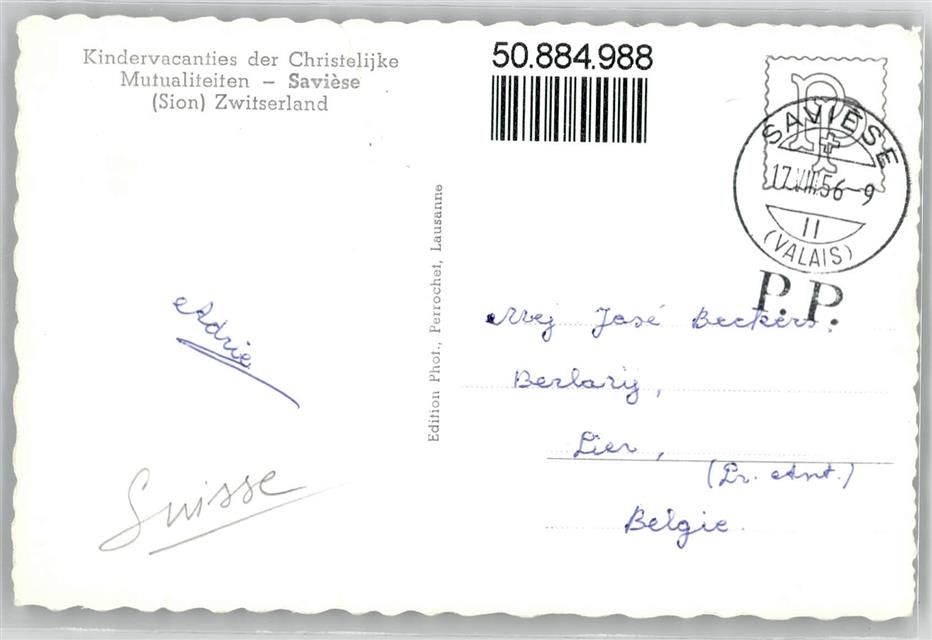 Kindervacanties der Christelijke
Mutualiteiten – Savièse
(Sion) Zwitserland
50.884.988
SAVIÈSE
17.VIII.56–9
II
(VALAIS)
P.P.
Edition Phot., Perrochet, Lausanne
Adrie
Suisse
Mej José Beckers.
Berlarij,
Lier,
(Pr. Ant.)
Belgie.